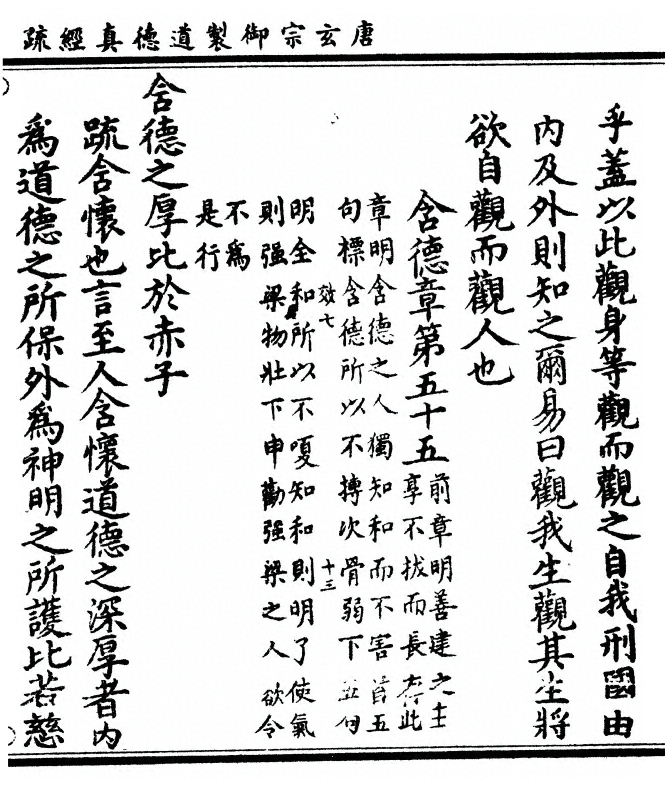 唐玄宗御製道德真經疏
乎蓋以此觀身等觀而觀之自我刑國由
內及外則知之爾易曰觀我生觀其生將
欲自觀而觀人也
含德章第五十五
前章明善建之士
享不拔而長存此
章明含德之人獨知和而不害首五
句標含德所以不摶次骨弱下五句
效七
十三
明全和所以不嗄知和則明了使氣
則强梁物壯下申勸强梁之人欲令
不爲
是行
含德之厚比於赤子
疏含懷也言至人含懷道德之深厚者內
爲道德之所保外爲神明之所護比若慈